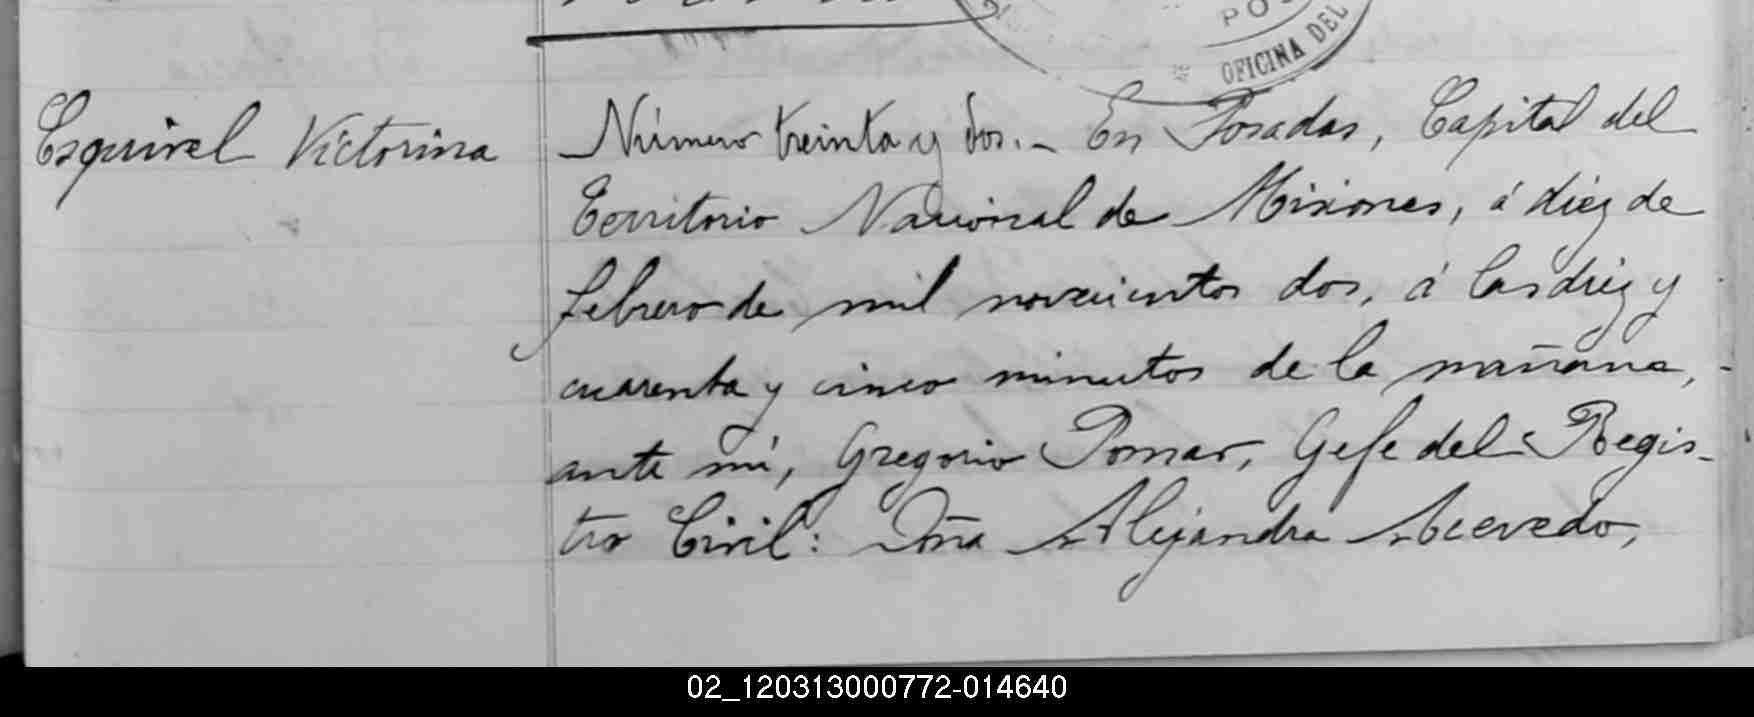 PO
OFICINA DEL
Esquivel Victorina
Número treinta y dos.- En Posadas, Capital del
Territorio Nacional de Misiones, á diez de
febrero de mil novecientos dos, á las diez y
cuarenta y cinco minutos de la mañana,
ante mí, Gregorio Pomar, Gefe del Regis-
tro Civil: Doña Alejandra Acevedo,
02_120313000772-014640